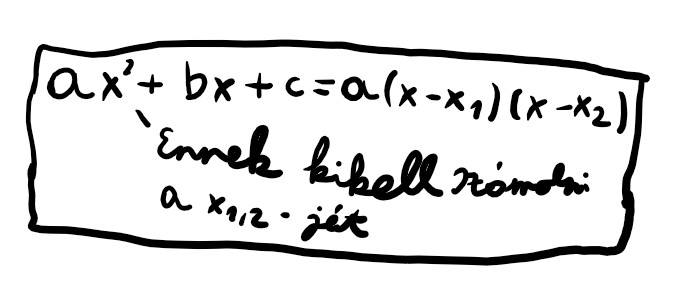 ax² + bx + c = a(x-x₁)(x-x₂)
Ennek kikell számolni
a x₁,₂-jét